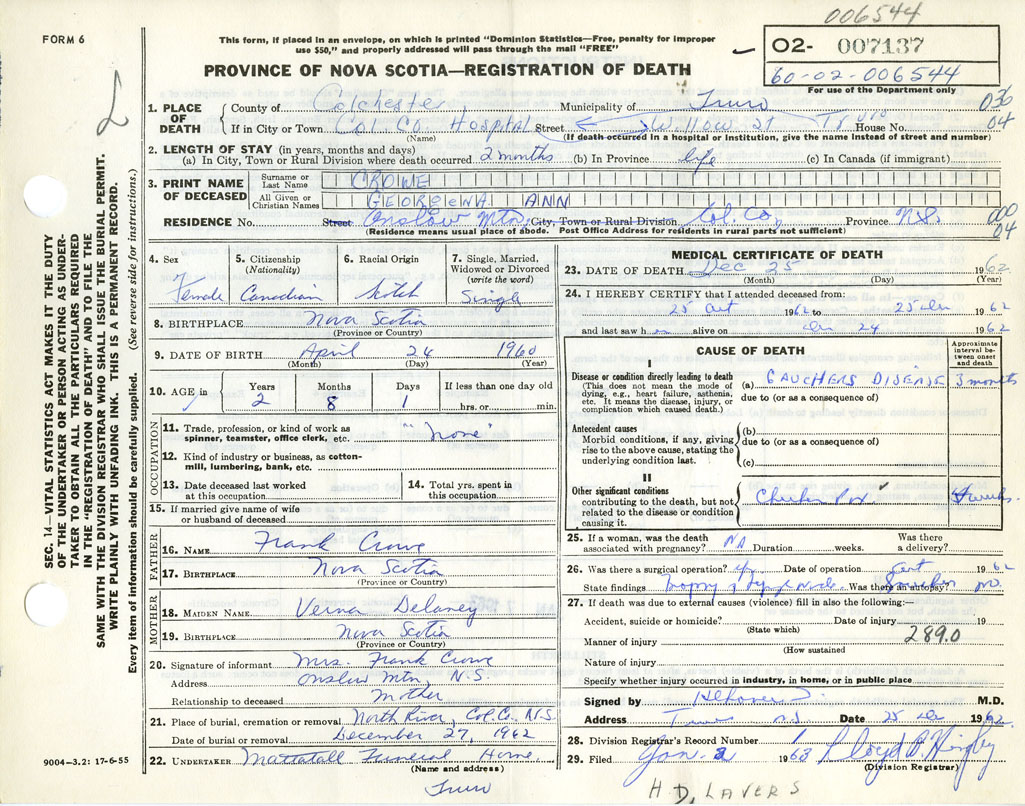 006544
FORM 6
This form, if placed in an envelope, on which is printed "Dominion Statistics—Free, penalty for improper
use $50," and properly addressed will pass through the mail "FREE"
PROVINCE OF NOVA SCOTIA—REGISTRATION OF DEATH
02- 007137
60-02-006544
For use of the Department only
SEC. 14—VITAL STATISTICS ACT MAKES IT THE DUTY
OF THE UNDERTAKER OR PERSON ACTING AS UNDER-
TAKER TO OBTAIN ALL THE PARTICULARS REQUIRED
IN THE "REGISTRATION OF DEATH" AND TO FILE THE
SAME WITH THE DIVISION REGISTRAR WHO SHALL ISSUE THE BURIAL PERMIT.
WRITE PLAINLY WITH UNFADING INK. THIS IS A PERMANENT RECORD.
Every item of information should be carefully supplied. (See reverse side for instructions.)
1. PLACE OF DEATH County of Colchester Municipality of Truro 036
If in City or Town Col. Co Hospital Street Willow St Truro House No. 04
(Name) (If death occurred in a hospital or institution, give the name instead of street and number)
2. LENGTH OF STAY (in years, months and days)
(a) In City, Town or Rural Division where death occurred 2 months (b) In Province life (c) In Canada (if immigrant)
3. PRINT NAME OF DECEASED Surname or Last Name CROWE
All Given or Christian Names GEORGENA ANN
RESIDENCE No. Street Onslow Mtn, City, Town or Rural Division Col. Co, Province N.S. 000
04
(Residence means usual place of abode. Post Office Address for residents in rural parts not sufficient)
4. Sex Female
5. Citizenship (Nationality) Canadian
6. Racial Origin Scotch
7. Single, Married, Widowed or Divorced (write the word) Single
8. BIRTHPLACE Nova Scotia
(Province or Country)
9. DATE OF BIRTH April 24 1960
(Month) (Day) (Year)
10. AGE in Years 2 Months 8 Days 1 If less than one day old
hrs. or min.
OCCUPATION
11. Trade, profession, or kind of work as
spinner, teamster, office clerk, etc. "None"
12. Kind of industry or business, as cotton-
mill, lumbering, bank, etc.
13. Date deceased last worked
at this occupation
14. Total yrs. spent in
this occupation
15. If married give name of wife
or husband of deceased
FATHER
16. NAME Frank Crowe
17. BIRTHPLACE Nova Scotia
(Province or Country)
MOTHER
18. MAIDEN NAME Verna Delaney
19. BIRTHPLACE Nova Scotia
(Province or Country)
20. Signature of informant Mrs. Frank Crowe
Address Onslow Mtn, N.S.
Relationship to deceased Mother
21. Place of burial, cremation or removal North River, Col. C., N.S.
Date of burial or removal December 27, 1962
22. UNDERTAKER Mattatall Funeral Home,
(Name and address)
Truro
9004-3.2: 17-6-55
MEDICAL CERTIFICATE OF DEATH
23. DATE OF DEATH Dec 25 1962
(Month) (Day) (Year)
24. I HEREBY CERTIFY that I attended deceased from:
25 Oct 1962 to 25 Dec 1962
and last saw h alive on Dec 24 1962
CAUSE OF DEATH
Approximate interval between onset and death
I
Disease or condition directly leading to death
(This does not mean the mode of
dying, e.g., heart failure, asthenia,
etc. It means the disease, injury, or
complication which caused death.)
(a) GAUCHERS DISEASE 3 months
due to (or as a consequence of)
Antecedent causes
Morbid conditions, if any, giving
rise to the above cause, stating the
underlying condition last.
(b)
due to (or as a consequence of)
(c)
II
Other significant conditions
contributing to the death, but not
related to the disease or condition
causing it.
Chicken Pox weeks.
25. If a woman, was the death
associated with pregnancy? NA Duration weeks. Was there
a delivery?
26. Was there a surgical operation? yes Date of operation Sept 1962
State findings Biopsy lymph node Was there an autopsy? no.
27. If death was due to external causes (violence) fill in also the following:—
Accident, suicide or homicide? Date of injury 19
(State which)
Manner of injury 289.0
(How sustained
Nature of injury
Specify whether injury occurred in industry, in home, or in public place
Signed by M.D.
Address Truro N.S. Date 25 Dec 1962.
28. Division Registrar's Record Number 1
29. Filed Jan. 2 1963
(Division Registrar)
H D, LAVERS